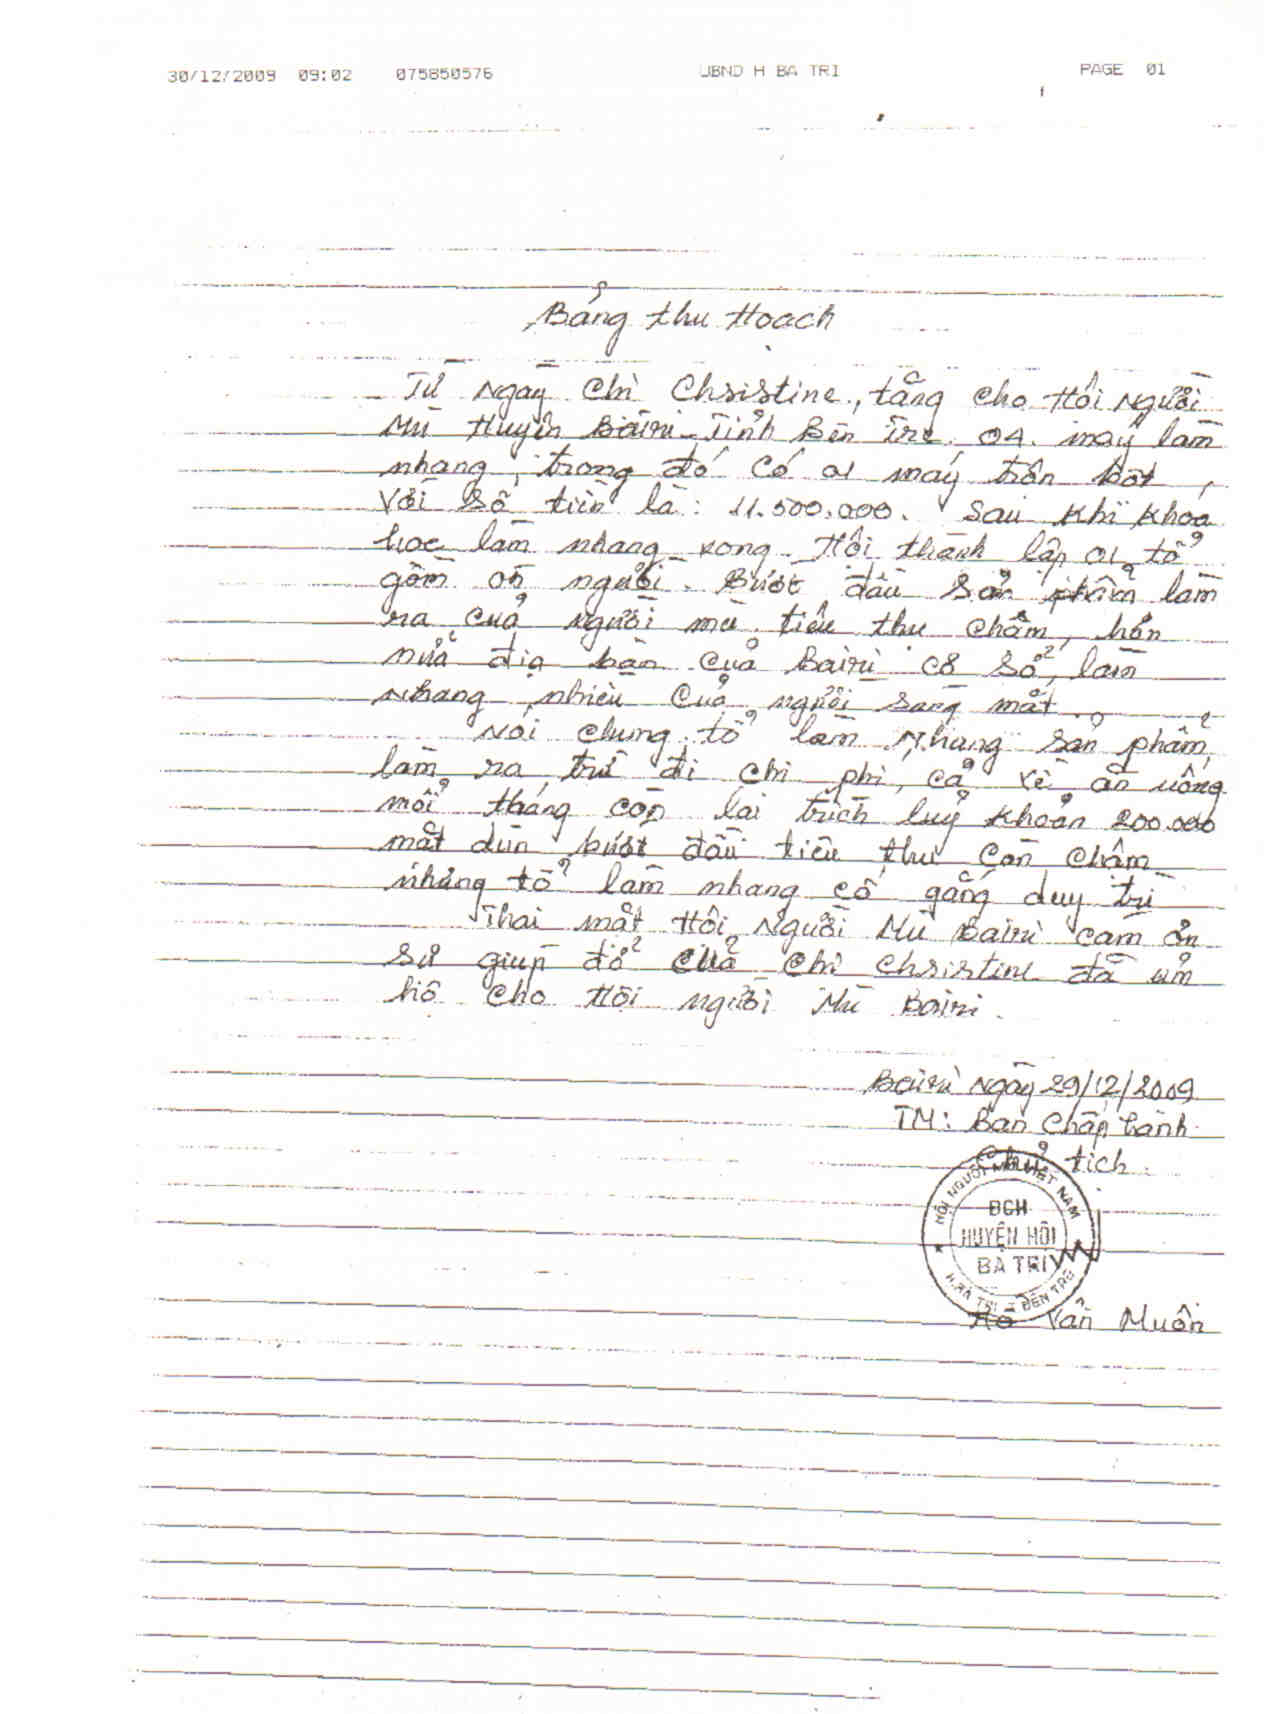 30/12/2009 09:02 075850576 UBND H BA TRI PAGE 01
Bảng thu Hoạch
Từ ngày Chị Chsistine, tặng cho Hội Người
Mù Huyện Batri - Tỉnh Bến Tre. 04. máy làm
nhang, trong đó có 01 máy trộn bột,
Với số tiền là: 11.500.000. Sau khi khoa
học làm nhang xong. Hội thành lập 01 tổ
gồm 05 người. Bước đầu sản phẩm làm
ra của người mù. tiêu thụ chậm, hơn
nửa địa bàn của Batri cơ sở, làm
nhang nhiều của người sáng mắt.
Nói chung tổ làm nhang sản phẩm
làm ra, trừ đi chi phí, cả về ăn uống
mỗi tháng còn lại trích luỹ khoản 200.000
mặt dùn bước đầu tiêu thụ còn chậm
nhưng tổ làm nhang cố gắng duy trì
Thai mặt Hội Người Mù Batri cam ơn
sự giúp đỡ của chị Chsistine đã ủn
hộ cho Hội người Mù Batri.
Batri ngày 29/12/2009
TM: Ban Chấp hành
Chủ tịch.
HỘI NGƯỜI MÙ VIỆT NAM
BCH
HUYỆN HỘI
BA TRI
H.BA TRI - T BẾN TRE
Hồ Văn Muôn